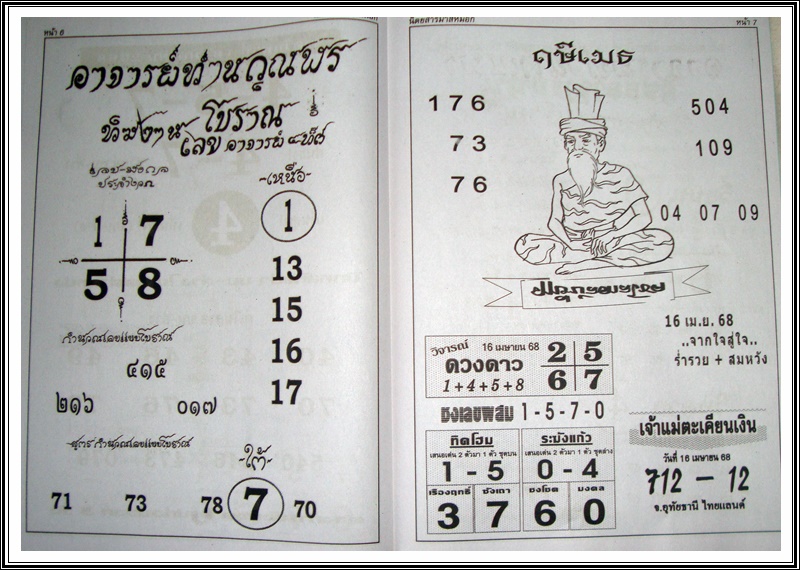 หน้า 6
อาจารย์ท่านคุณพร
ทีมงาน โบราณ
เลข อาจารย์
ประจำงวด
-เหนือ-
1 7
5 8
1
13
15
16
17
คำนวณเลขแบบโบราณ
๔๑๕
๒๑๖ ๐๑๗
สูตร คำนวณเลขแบบโบราณ
-ใต้-
71 73 78 7 70
หน้า 7
ฤษีเมธ
176
73
76
504
109
04 07 09
16 เม.ย. 68
..จากใจสู่ใจ..
ร่ำรวย + สมหวัง
วิจารณ์ 16 เมษายน 68
ดวงดาว
1+4+5+8
2 5
6 7
ธงเลขผสม 1-5-7-0
ทิดโฮม
เสนอเด่น 2 ตัวมา 1 ตัว ชุดบน
1 - 5
ระฆังแก้ว
เสนอเด่น 2 ตัวมา 1 ตัว ชุดล่าง
0 - 4
เรืองฤทธิ์ ชังเถา ธงโชค มงคล
3 7 6 0
เจ้าแม่ตะเคียนเงิน
วันที่ 16 เมษายน 68
712 - 12
จ.อุทัยธานี ไทยแลนด์